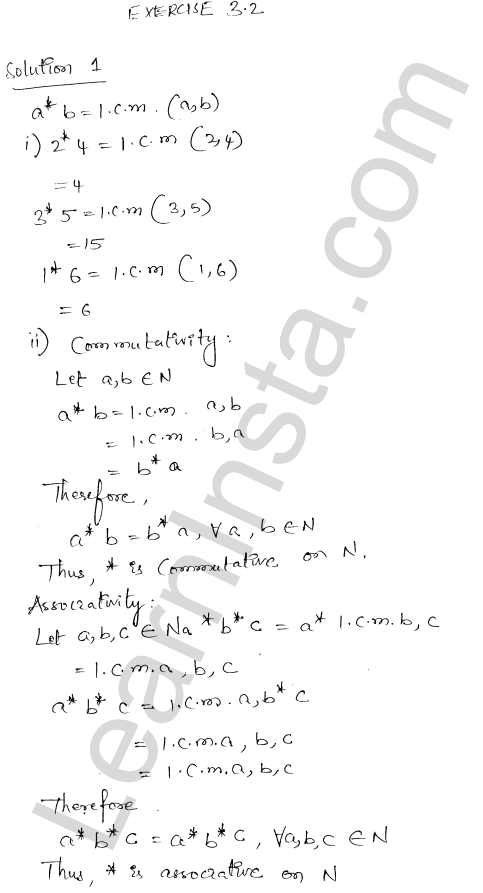 EXERCISE 3.2
Solution 1
a* b = l.c.m. (a,b)
i) 2* 4 = l.c.m (2,4)
= 4
3* 5 = l.c.m (3,5)
= 15
1* 6 = l.c.m (1,6)
= 6
ii) Commutativity:
Let a,b ∈ N
a* b = l.c.m. a,b
= l.c.m. b,a
= b* a
Therefore,
a* b = b* a, ∀ a, b ∈ N
Thus, * is Commutative on N.
Associativity:
Let a,b,c ∈ Na * b* c = a* l.c.m. b, c
= l.c.m. a, b, c
a* b* c = l.c.m. a, b* c
= l.c.m. a, b, c
= l.c.m. a, b, c
Therefore
a* b* c = a* b* c, ∀a,b,c ∈ N
Thus, * is associative on N
LearnInsta.com